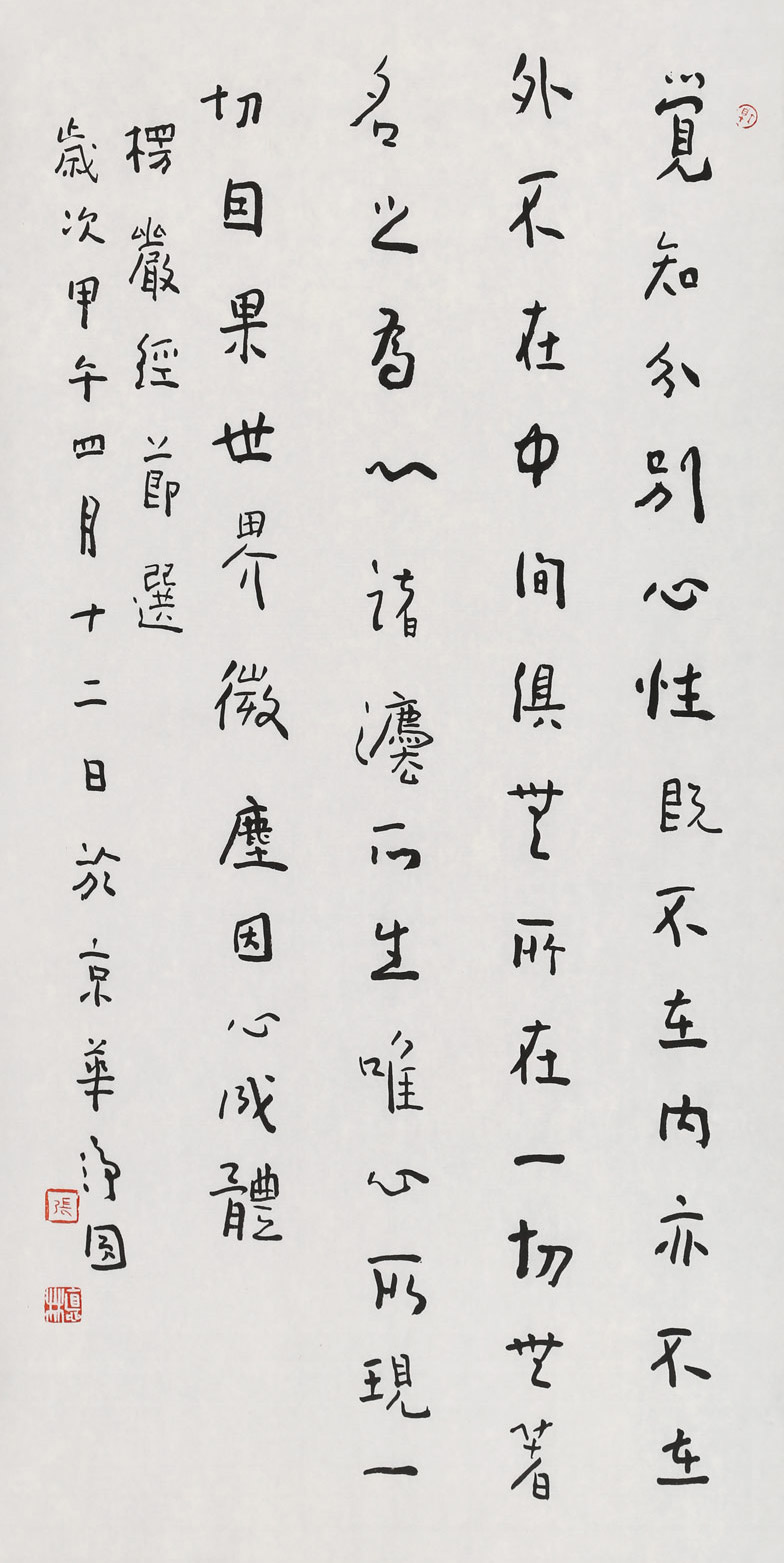 覺知分別心性既不在内亦不在
外不在中間俱無所在一切無著
名之為心諸灋所生唯心所現一
切因果世界微塵因心成體
楞嚴經節選
歲次甲午四月十二日於京華淨圓
張